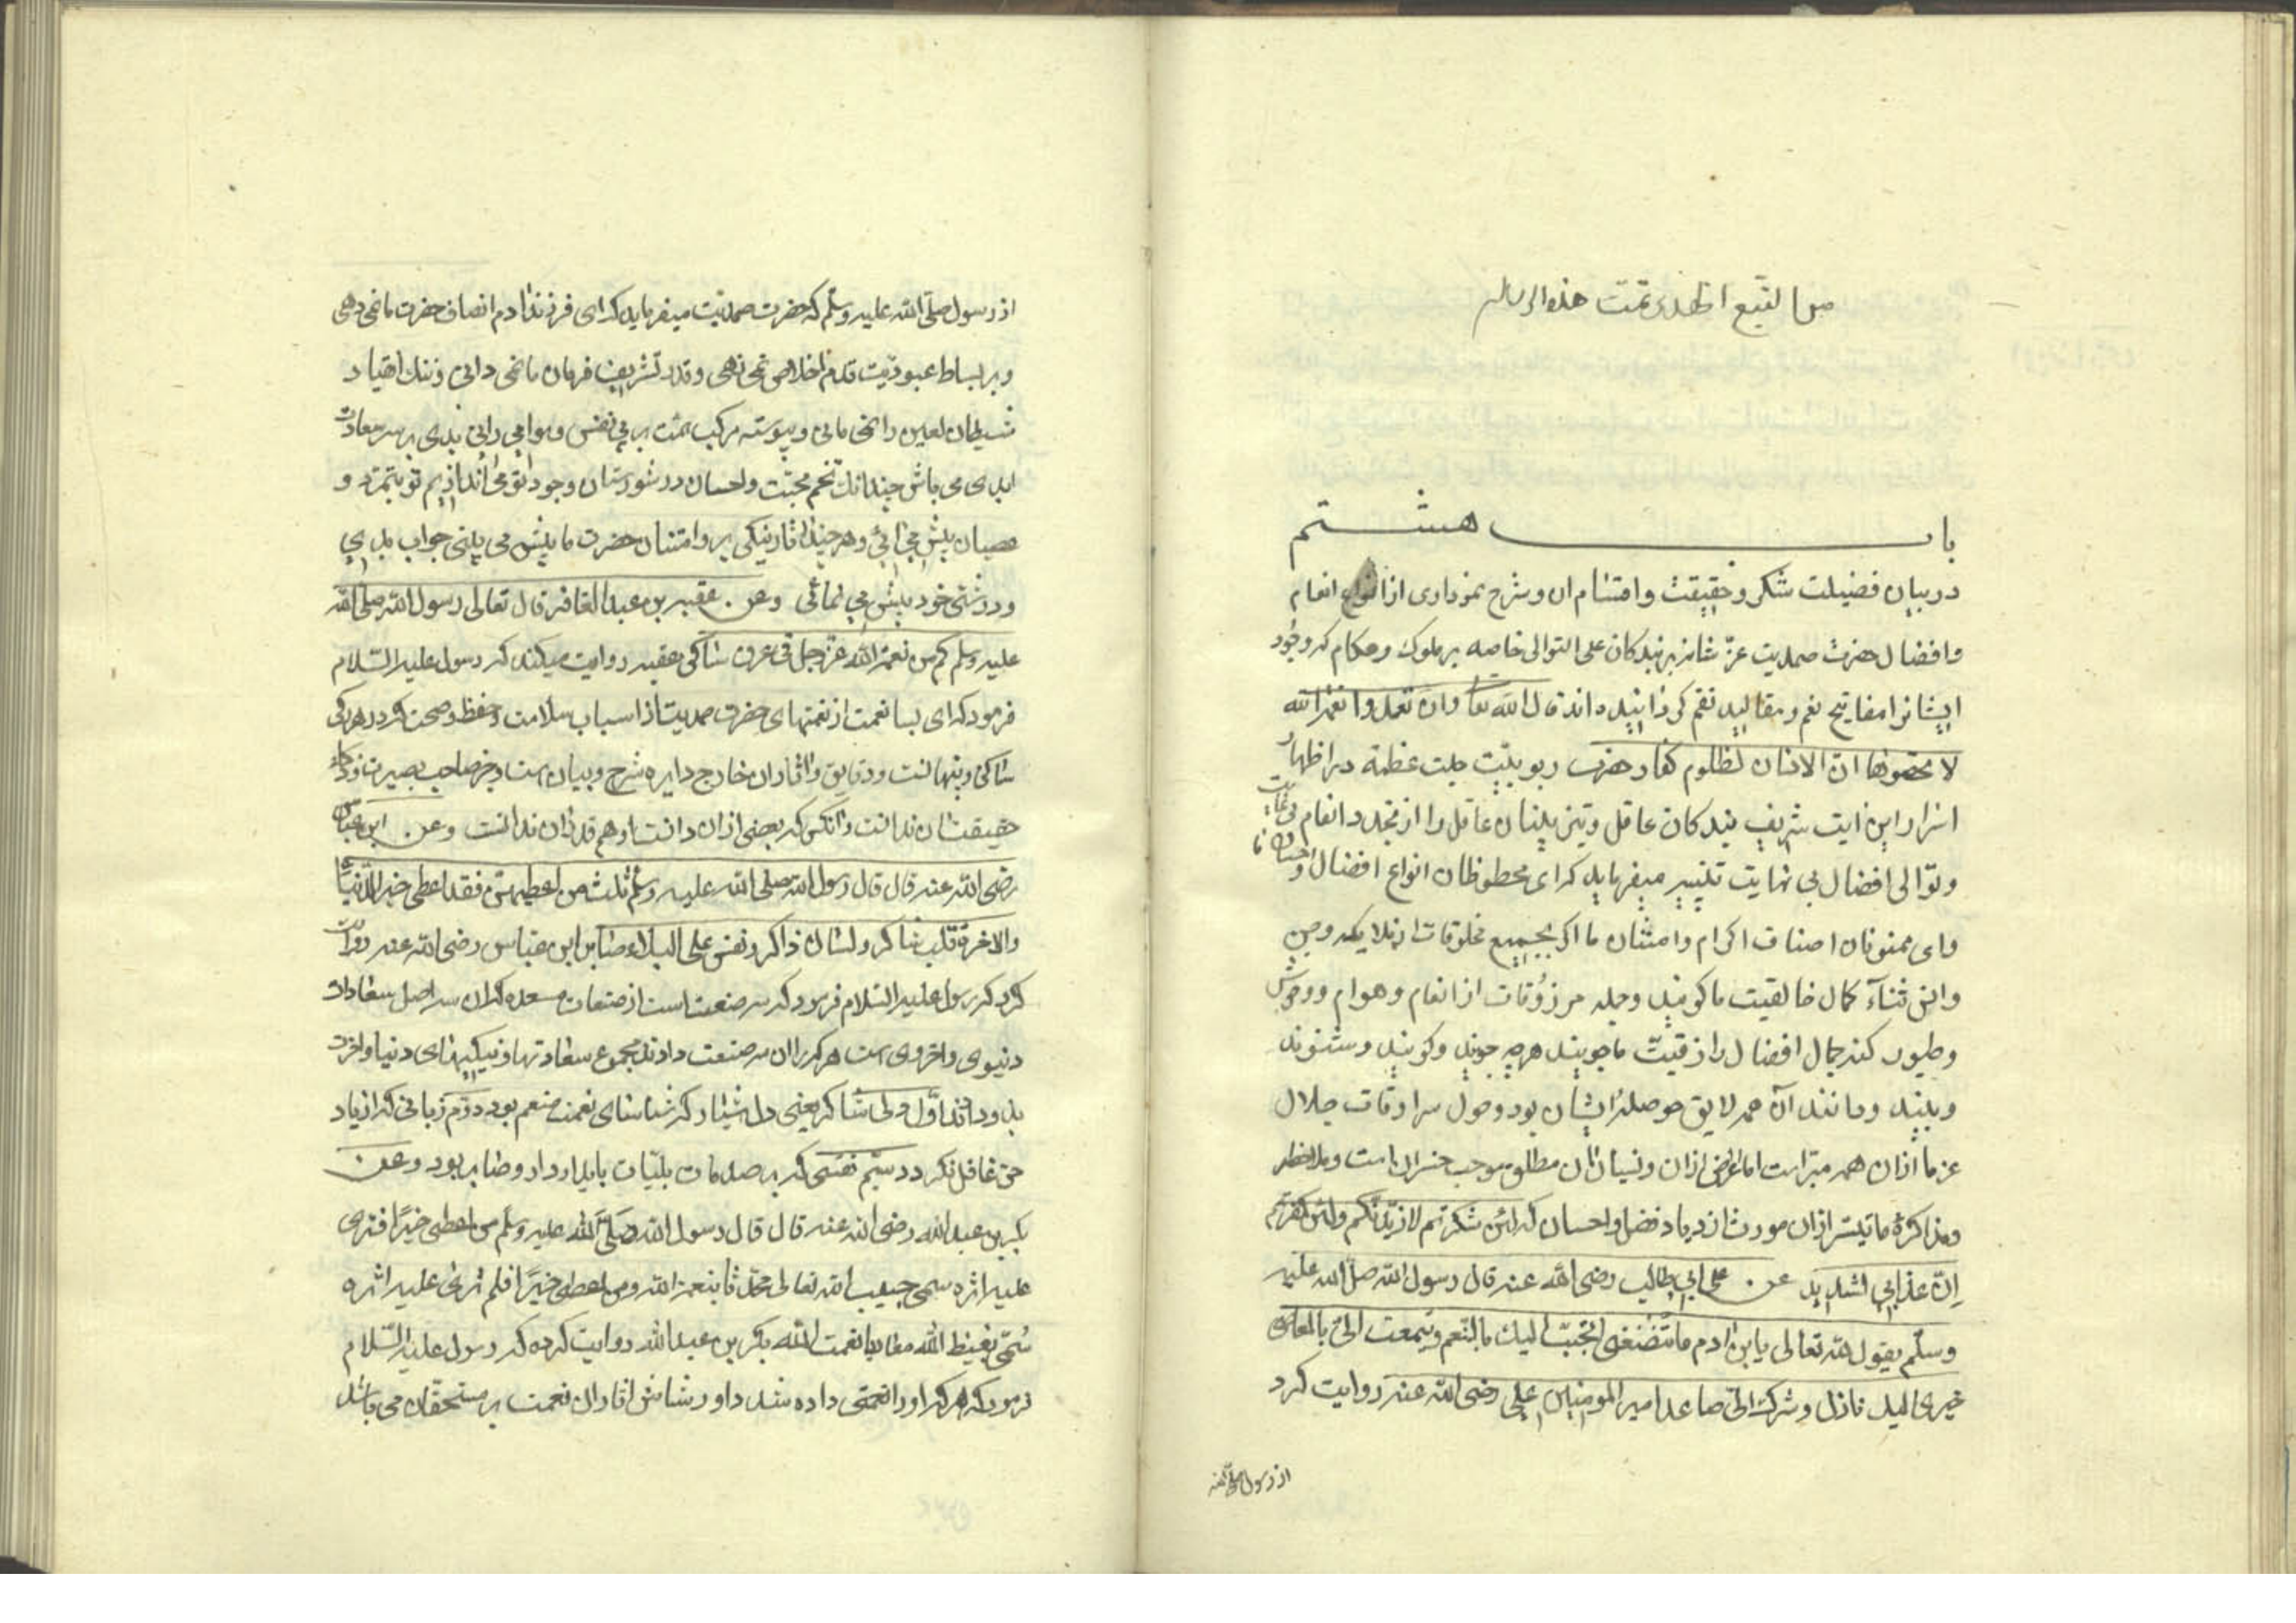 من التبع الهدی تمت هذه الرساله
باب هشتم
در بیان فضیلت شکر و حقیقت و اقسام ان و شرح نموداری از انواع انعام
و افضال حضرت صمدیت عزّ شانه بر بندکان علی التوالی خاصه بر ملوک و حکام که وجود
ایشانرا مفاتیح نعم و مقالید نقم کردانیده اند قال الله تعا وان تعدوا نعمة الله
لا تحصوها ان الانسان لظلوم کفار حضرت ربوبیّت جلت عظمته در اظهار
اسرار این ایت شریف بندکان عاقل و تیزبینان عاقل را از تجدد انعام بی غایت
و توالی افضال بی نهایت تنبیه میفرماید که ای محظوظان انواع افضال و احسان ما
وای ممنونان اصناف اکرام و امتنان ما اکر بجمیع مخلوقات از ملایکه و جن
و انس ثنآء کمال خالقیت ما کویند و جمله مرزوقات از انعام و هوام و وحوش
و طیور کنه جمال افضال رازقیّت ما جویند هرچه جویند و کویند و شنوند
و بینند و مانند آن همه لایق حوصلهٔ ایشان بود و حول سرادقات جلال
عز ما ازان همه مبّراست اما اعراض ازان و نسیان ان مطلق موجب خسران است و ملاحظه
و مذاکرهٔ ما تیسّر ازان مورث ازدیاد فضل و احسان که لئن شکرتم لازیدنّکم ولئن کفرتم
اِنّ عذابی لشدید عن علی ابی طالب رضی الله عنه قال رسول الله صلّ الله علیه
وسلّم یقول الله تعالی یابن ادم ما تُنصفنی اتحبّب الیک بالنّعم و تتمقت الیّ بالمعاصی
خیری الیک نازل و شرک الیّ صاعد امیر المومنین علی رضی الله عنه روایت کرد
از رسول صلّی الله
از رسول صلّی الله علیه وسلّم که حضرت صمدیّت میفرماید که ای فرزند ادم انصاف حضرت ما نمی دهی
و بر بساط عبودیّت قدم اخلاص نمی نهی و قدر تشریف فرمان ما نمی دانی و ننک انقیاد
شیطان لعین را نمی مانی و پیوسته مرکب همّت بر پی نفس و هوا می رانی بدی بر سر سعادت
ابدی می باش چندانک تخم محبّت و احسان در شورستان وجود تو می اندازیم تو بتمرّد و
عصیان پیش می ائی و هر چند اثار نیکی بر و امتنان حضرت ما بیش می بینی جواب بدی
و درشتی خود بیش می نمائی وعن عقبه بن عبد الغافر قال تعالی رسول الله صلی الله
علیه وسلم کم من نعمة الله عزّ وجل فی عرق ساکن عقبه روایت میکند که رسول علیه السّلام
فرمود که ای بسا نعمت از نعمتهای حضرت صمدیت از اسباب سلامت و حفظ و صحت که در هر رکی
ساکن و پنهانست و دقایق و اثار ان خارج دایره شرح و بیان است و جز صاحب بصیرت و ذکاء
حقیقت ان ندانست و انکس که بعضی ازان دانست او هم قدر ان ندانست وعن ابن عبّاس
رضی الله عنه قال قال رسول الله صلی الله علیه وسلّم ثلث من اعطیهنّ فقد اعطی خیر الدّنیا
والاخرة قلب شاکر ولسان ذاکر ونفس علی البلاء صابر ابن عبّاس رضی الله عنه روایت
کرد که رسول علیه السّلام فرمود که سه صنعت است از صنعات مسعده که ان سه اصل سعادات
دنیوی و اخروی است هر که را ان سه صنعت دادند مجموع سعادتها و نیکیهای دنیا و اخرت
بدو دادند اوّل دلی شاکر یعنی دل بیدار که شناسای نعمت منعم بود دوّم زبانی که از یاد
حق غافل نکردد سیّم نفسی که بر صدمات بلیّات پایدار دارد و صابر بود وعن
بکر بن عبدالله رضی الله عنه قال قال رسول الله صَلّی الله علیه وسلّم من اعطی خیرًا فتری
علیه اثره سمی حبیب الله تعالی محدّثا بنعمة الله ومن اعطی خیرًا فلم تری علیه اثره
سُمّی بغیض الله معادیا نعمت الله بکر بن عبدالله روایت کرده که رسول علیه السّلام
فرمود که هر که او را نعمتی داده شد و او رشاش اثار ان نعمت بر مستحقان می باشد